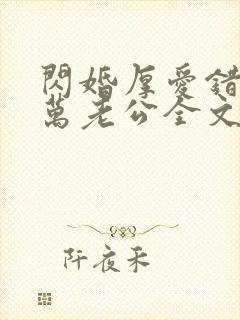 閃婚厚愛錯
萬老公全文
阡夜禾